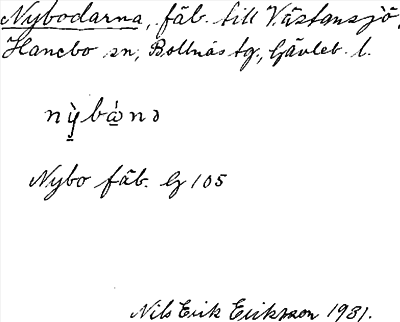 Nybodarna, fäb. till Västansjö,
Hanebo sn, Bollnäs tg., Gävleb. l.
nỳ̱bά̱nɔ
Nybo fäb. G 105
Nils Erik Eriksson 1931.